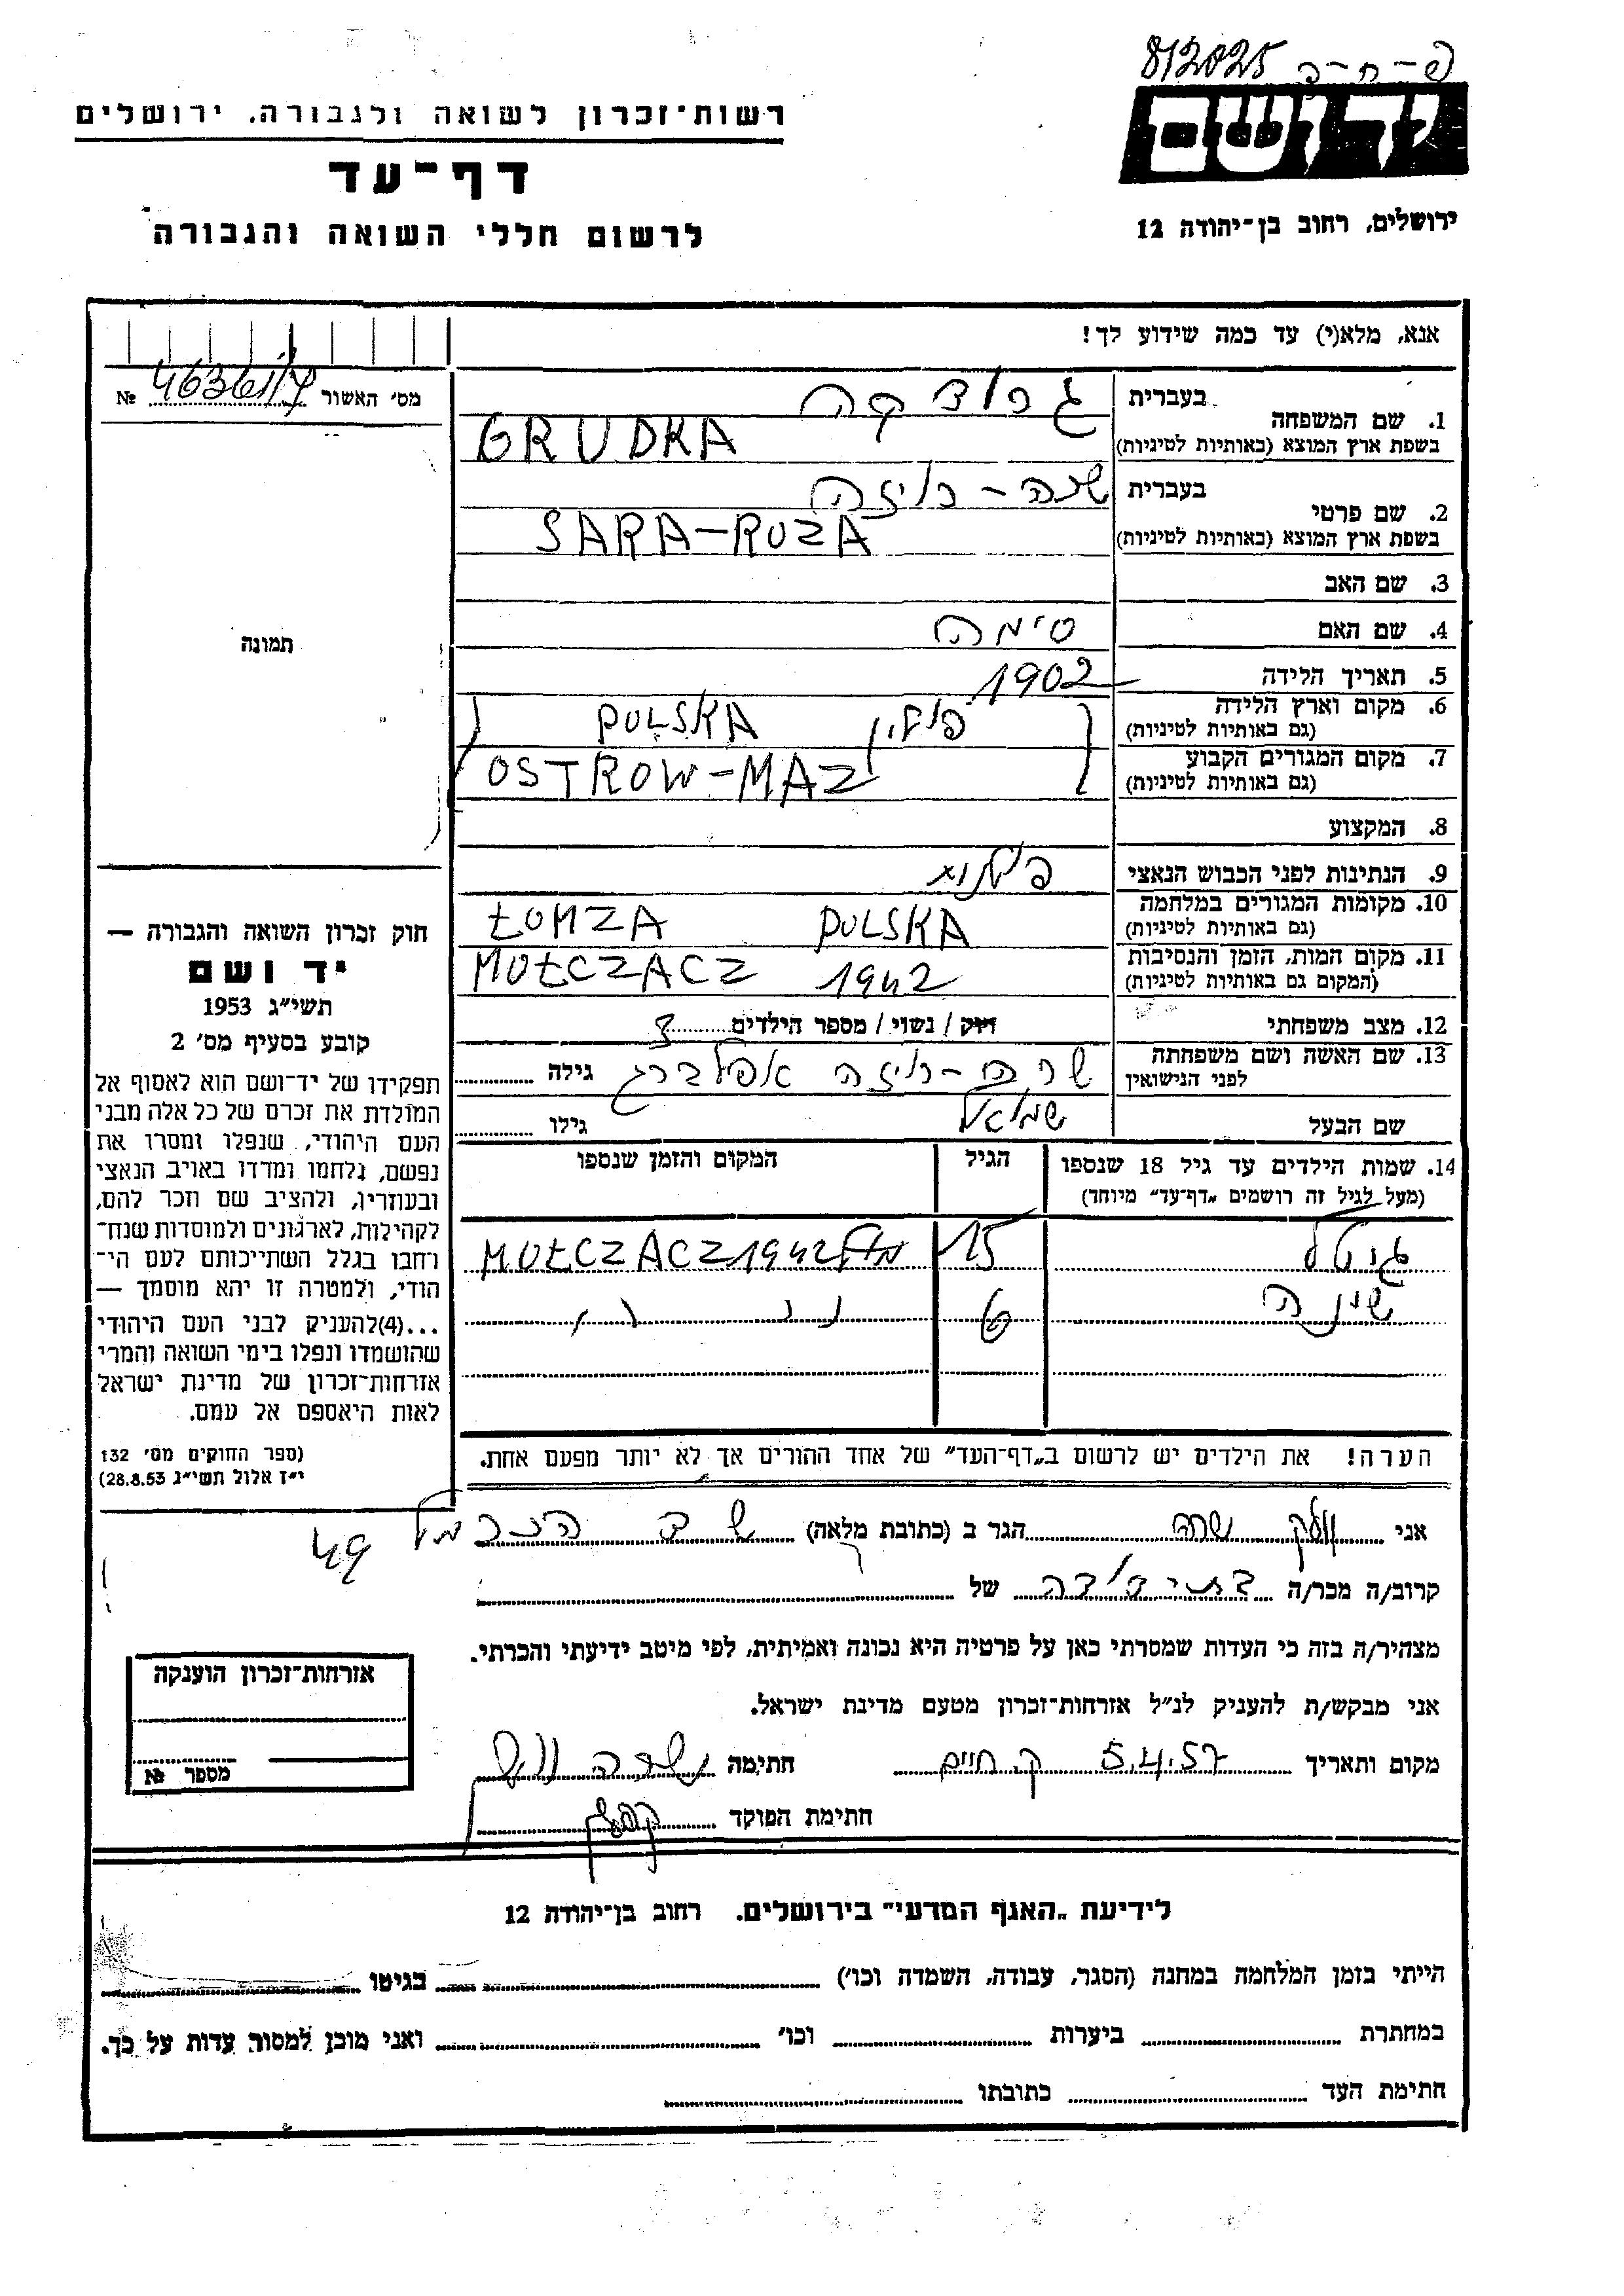 812025 פ-ח-ה
יד ושם
ירושלים, רחוב בן-יהודה 12
רשות-זכרון לשואה ולגבורה, ירושלים
דף-עד
לרשום חללי השואה והגבורה
אנא, מלא(י) עד כמה שידוע לך!
מס' האשור № 46361/7
תמונה
1. שם המשפחה
בעברית גרודקה
בשפת ארץ המוצא (באותיות לטיניות) GRUDKA
2. שם פרטי
בעברית שרה-רוזה
בשפת ארץ המוצא (באותיות לטיניות) SARA-RUZA
3. שם האב
4. שם האם סימה
5. תאריך הלידה 1902
6. מקום וארץ הלידה
(גם באותיות לטיניות) פולין POLSKA
7. מקום המגורים הקבוע
(גם באותיות לטיניות) OSTROW-MAZ
8. המקצוע
9. הנתינות לפני הכבוש הנאצי
10. מקומות המגורים במלחמה
(גם באותיות לטיניות) ŁOMZA POLSKA
11. מקום המות, הזמן והנסיבות
(המקום גם באותיות לטיניות) MOŁCZACZ 1942
12. מצב משפחתי רווק / נשוי / מספר הילדים 3
13. שם האשה ושם משפחתה
לפני הנישואין שרה-רוזה אפלברג גילה
שם הבעל שמואל גילו
14. שמות הילדים עד גיל 18 שנספו
(מעל לגיל זה רושמים "דף-עד" מיוחד)
הגיל
המקום והזמן שנספו
גיטל 15 MOŁCZACZ 1942
שינה 6 " "
הערה! את הילדים יש לרשום ב"דף-העד" של אחד ההורים אך לא יותר מפעם אחת.
חוק זכרון השואה והגבורה —
יד ושם
תשי"ג 1953
קובע בסעיף מס' 2
תפקידו של יד-ושם הוא לאסוף אל
המולדת את זכרם של כל אלה מבני
העם היהודי, שנפלו ומסרו את
נפשם, נלחמו ומרדו באויב הנאצי
ובעוזריו, ולהציב שם וזכר להם,
לקהילות, לארגונים ולמוסדות שנח-
רבו בגלל השתייכותם לעם הי-
הודי, ולמטרה זו יהא מוסמך —
...(4)להעניק לבני העם היהודי
שהושמדו ונפלו בימי השואה והמרי
אזרחות-זכרון של מדינת ישראל
לאות היאספם אל עמם.
(ספר החוקים מס' 132
י"ז אלול תשי"ג 28.8.53)
אני שרה הגר ב (כתובת מלאה) שד הכרמל 49
קרוב/ה מכר/ה בת דודה של
מצהיר/ה בזה כי העדות שמסרתי כאן על פרטיה היא נכונה ואמיתית, לפי מיטב ידיעתי והכרתי.
אני מבקש/ת להעניק לנ"ל אזרחות-זכרון מטעם מדינת ישראל.
מקום ותאריך 5.4.57 ק. חיים חתימה שרה
חתימת הפוקד
אזרחות-זכרון הוענקה
מספר №
לידיעת "האגף המדעי" בירושלים, רחוב בן-יהודה 12
הייתי בזמן המלחמה במחנה (הסגר, עבודה, השמדה וכו') בגיטו
במחתרת ביערות וכו' ואני מוכן למסור עדות על כך.
חתימת העד כתובתו